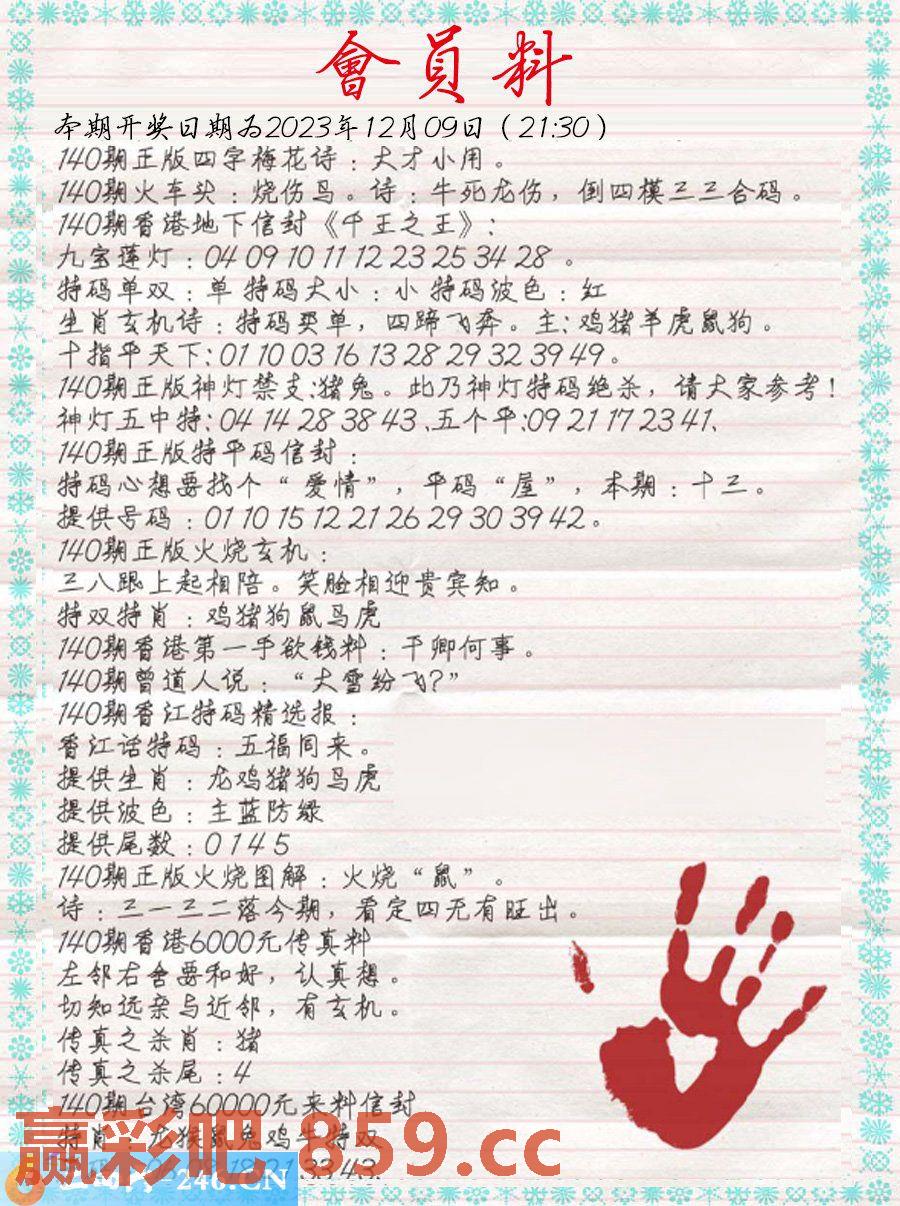 會員料
本期开奖日期为2023年12月09日（21:30）
140期正版四字梅花诗：大才小用。
140期火车头：烧伤鸟。诗：牛死龙伤，倒四模三三合码。
140期香港地下信封《千王之王》：
九宝莲灯：04 09 10 11 12 23 25 34 28 。
特码单双：单 特码大小：小 特码波色：红
生肖玄机诗：特码买单，四蹄飞奔。主：鸡猪羊虎鼠狗。
十指平天下：01 10 03 16 13 28 29 32 39 49。
140期正版神灯禁支:猪兔。此乃神灯特码绝杀，请大家参考！
神灯五中特：04 14 28 38 43 、五个平:09 21 17 23 41、
140期正版特平码信封：
特码心想要找个“爱情”，平码“屋”，本期：十三。
提供号码：01 10 15 12 21 26 29 30 39 42。
140期正版火烧玄机：
三八跟上起相陪。笑脸相迎贵宾知。
特双特肖：鸡猪狗鼠马虎
140期香港第一手欲钱料：干卿何事。
140期曾道人说：“大雪纷飞?”
140期香江特码精选报：
香江话特码：五福同来。
提供生肖：龙鸡猪狗马虎
提供波色：主蓝防绿
提供尾数：0 1 4 5
140期正版火烧图解：火烧“鼠”。
诗：三一三二落今期，看定四无有旺出。
140期香港6000元传真料
左邻右舍要和好，认真想。
切知远亲与近邻，有玄机。
传真之杀肖：猪
传真之杀尾：4
140期台湾60000元来料信封
特肖：龙猴鼠兔鸡牛特双
33 43
赢彩吧.859.cc
246.CN